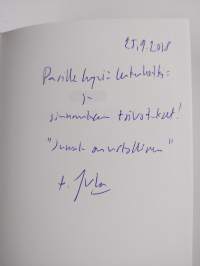 25.9.2018
Pasille hyviä lukuhetkiä
ja
siunauksen toivotukset!
"Jumala on uskollinen"
t. Juha